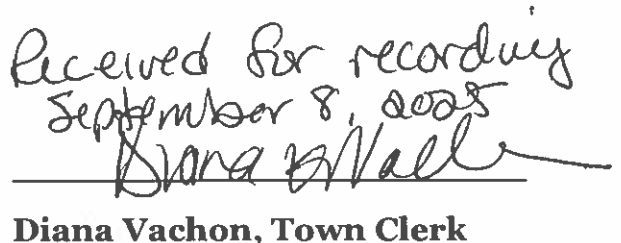 Received for recording
September 8, 2025
Diana Vachon, Town Clerk